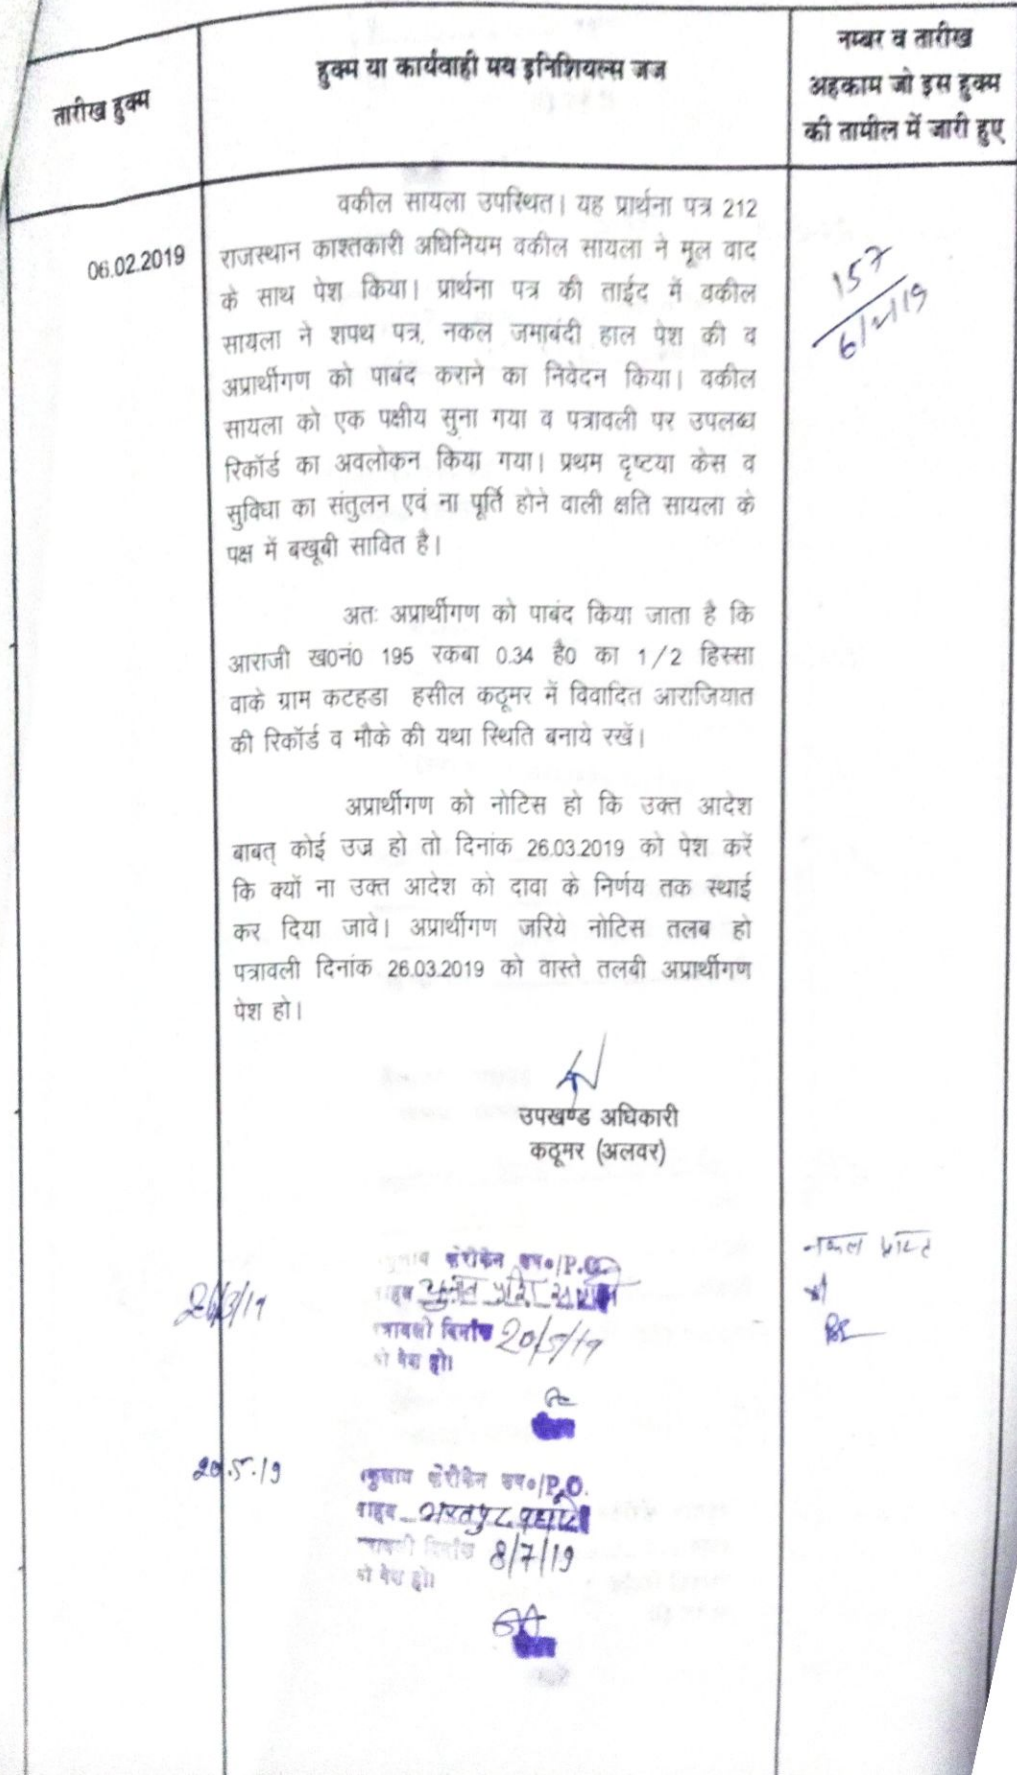 तारीख हुक्म
हुक्म या कार्यवाही मय इनिशियल्स जज
नम्बर व तारीख
अहकाम जो इस हुक्म
की तामील में जारी हुए
06.02.2019
वकील सायला उपस्थित। यह प्रार्थना पत्र 212
राजस्थान काश्तकारी अधिनियम वकील सायला ने मूल वाद
के साथ पेश किया। प्रार्थना पत्र की ताईद में वकील
सायला ने शपथ पत्र, नकल जमाबंदी हाल पेश की व
अप्रार्थीगण को पाबंद कराने का निवेदन किया। वकील
सायला को एक पक्षीय सुना गया व पत्रावली पर उपलब्ध
रिकॉर्ड का अवलोकन किया गया। प्रथम दृष्टया केस व
सुविधा का संतुलन एवं ना पूर्ति होने वाली क्षति सायला के
पक्ष में बखूबी सावित है।
157
6/2/19
अतः अप्रार्थीगण को पाबंद किया जाता है कि
आराजी ख0नं0 195 रकबा 0.34 है0 का 1/2 हिस्सा
वाके ग्राम कटहडा हसील कठूमर में विवादित आराजियात
की रिकॉर्ड व मौके की यथा स्थिति बनाये रखें।
अप्रार्थीगण को नोटिस हो कि उक्त आदेश
बाबत् कोई उज्र हो तो दिनांक 26.03.2019 को पेश करें
कि क्यों ना उक्त आदेश को दावा के निर्णय तक स्थाई
कर दिया जावे। अप्रार्थीगण जरिये नोटिस तलब हो
पत्रावली दिनांक 26.03.2019 को वास्ते तलबी अप्रार्थीगण
पेश हो।
उपखण्ड अधिकारी
कठूमर (अलवर)
नकल प्राप्त
26/3/19
/P.O.
दिनांक 20/5/19
पेश हो।
20.5.19
/P.O.
भरतपुर
दिनांक 8/7/19
पेश हो।